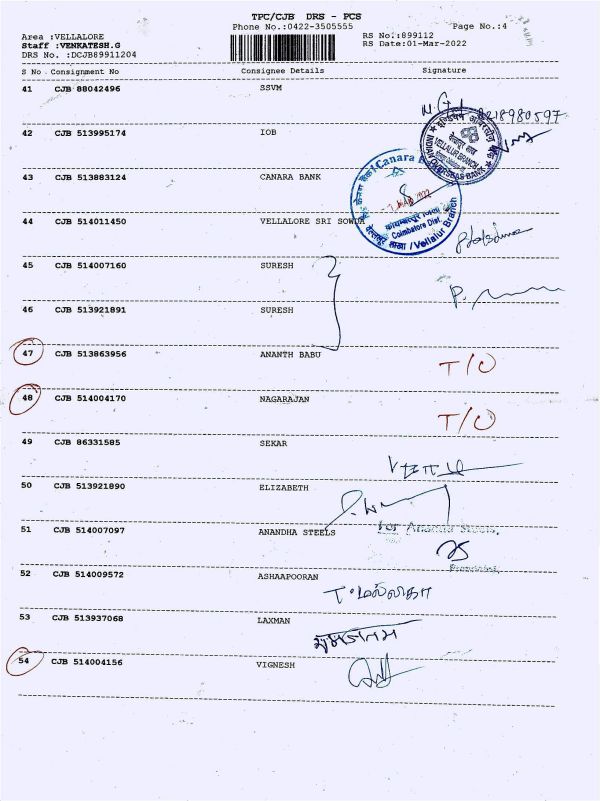 TPC/CJB DRS - PCS
Phone No.:0422-3505555
Page No.:4
Area :VELLALORE
RS No.:899112
Staff :VENKATESH.G
RS Date:01-Mar-2022
DRS No. :DCJB89911204
S No Consignment No Consignee Details Signature
41 CJB 88042496 SSVM
8218980597
42 CJB 513995174 IOB
VELLALUR BRANCH
INDIAN OVERSEAS BANK
43 CJB 513883124 CANARA BANK
Canara
Coimbatore Dist.
Vellalur Branch
44 CJB 514011450 VELLALORE SRI SOWDA
45 CJB 514007160 SURESH
46 CJB 513921891 SURESH
47 CJB 513863956 ANANTH BABU T/O
48 CJB 514004170 NAGARAJAN T/O
49 CJB 86331585 SEKAR
50 CJB 513921890 ELIZABETH
51 CJB 514007097 ANANDHA STEELS For Anandha Steels,
52 CJB 514009572 ASHAAPOORAN
T. மல்லிகா
53 CJB 513937068 LAXMAN
54 CJB 514004156 VIGNESH